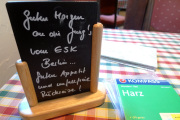 Guten Morgen
an die Jung's
vom ESK
Berlin...
Guten Appetit
und unfallfreie
Rückreise!
KOMPASS
Harz